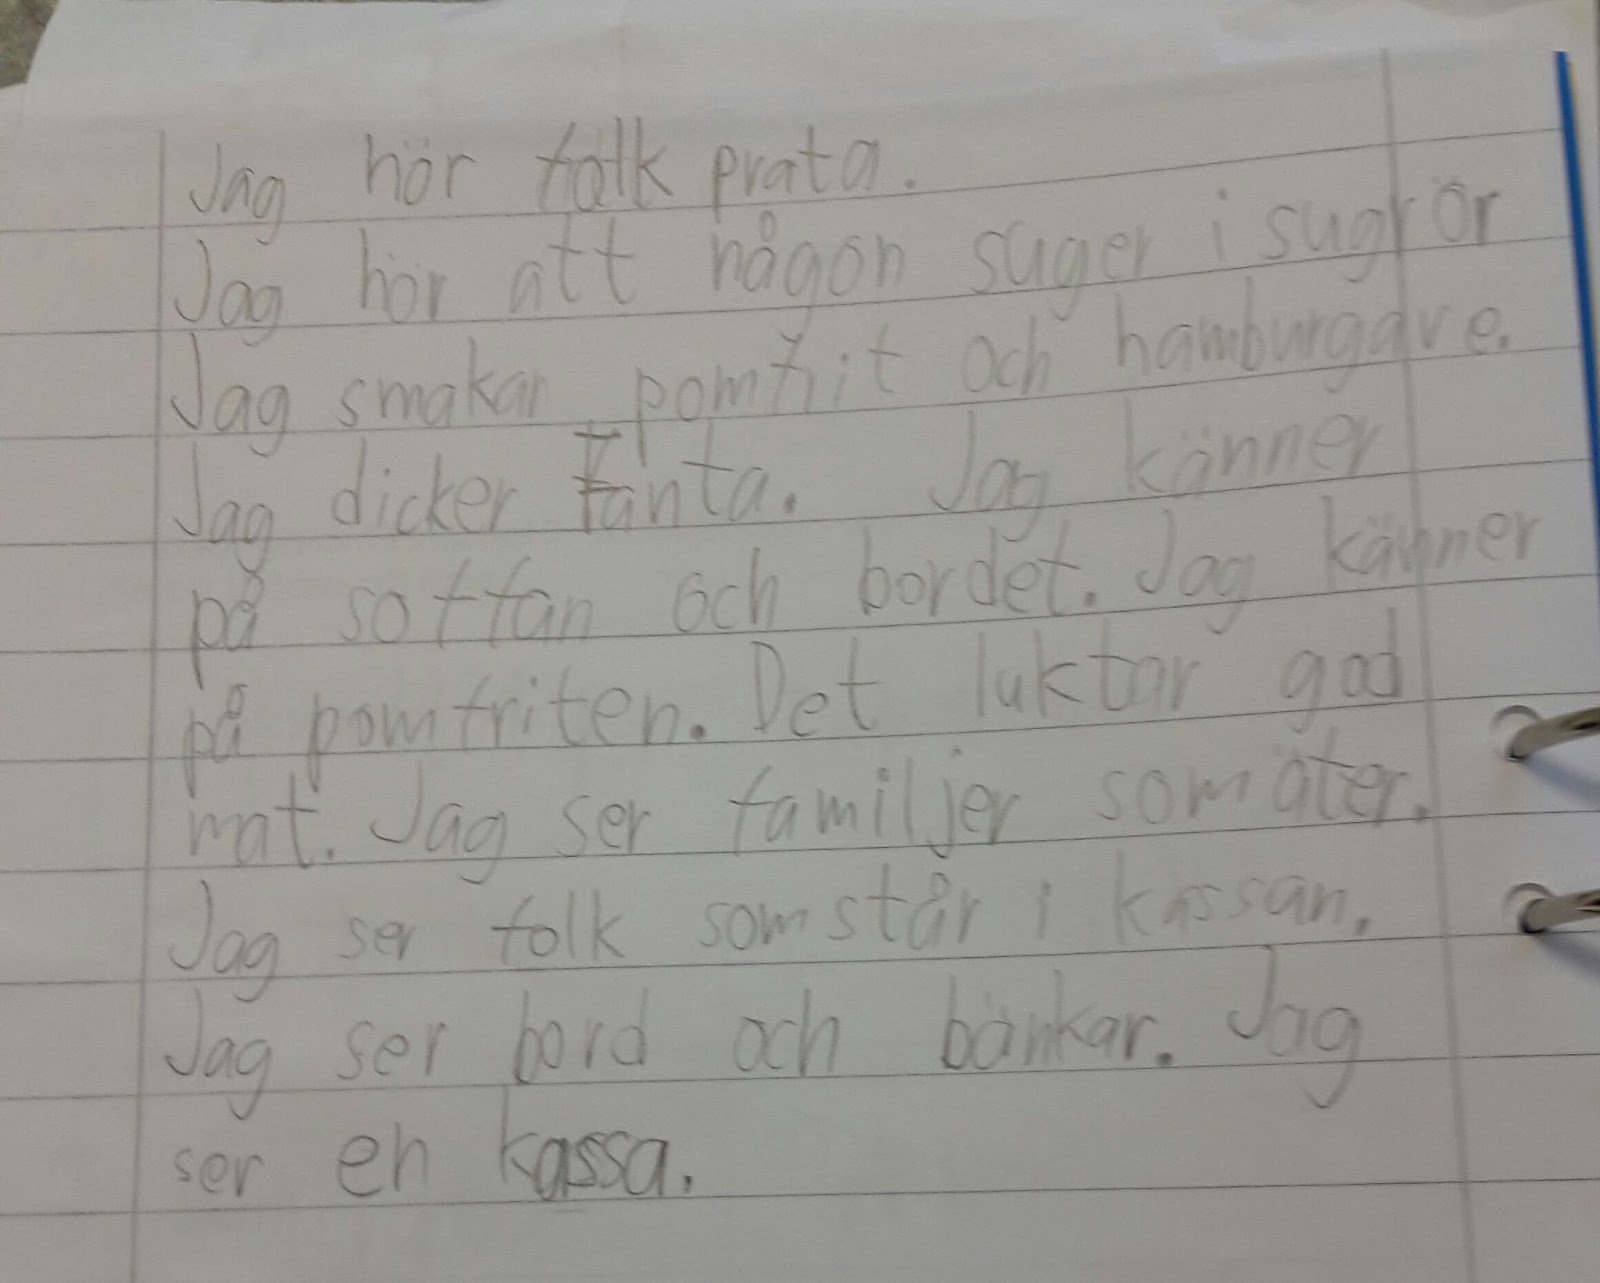 Jag hör folk prata.
Jag hör att någon suger i sugrör
Jag smakar pomfrit och hamburgare.
Jag dicker Fanta. Jag känner
på soffan och bordet. Jag känner
på pomfriten. Det luktar god
mat. Jag ser familjer som äter.
Jag ser folk som står i kassan.
Jag ser bord och bänkar. Jag
ser en kassa.